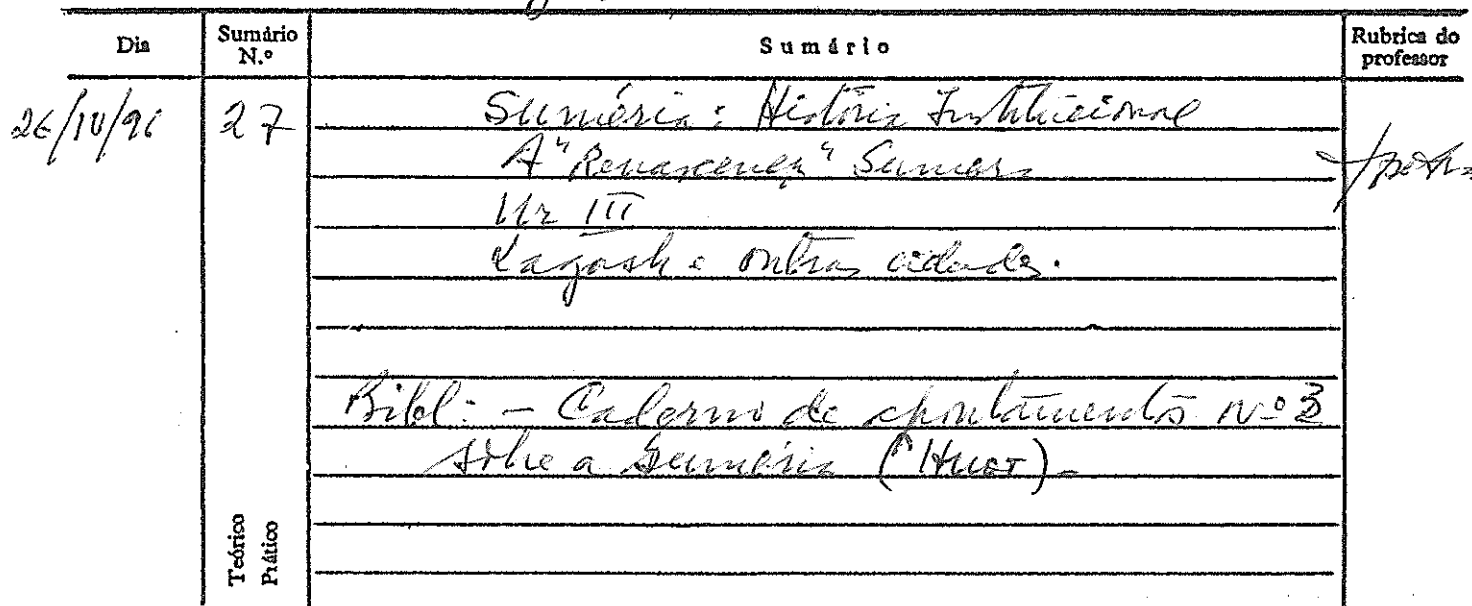 Dia Sumário N.º Sumário Rubrica do professor
26/IV/96 27 Suméria: História Institucional
A "Renascença" Suméria
Ur III
Lagash e outras cidades.
Bibl: - Caderno de apontamentos nº 3
sobre a Suméria (Huot) -
Teórico
Prático